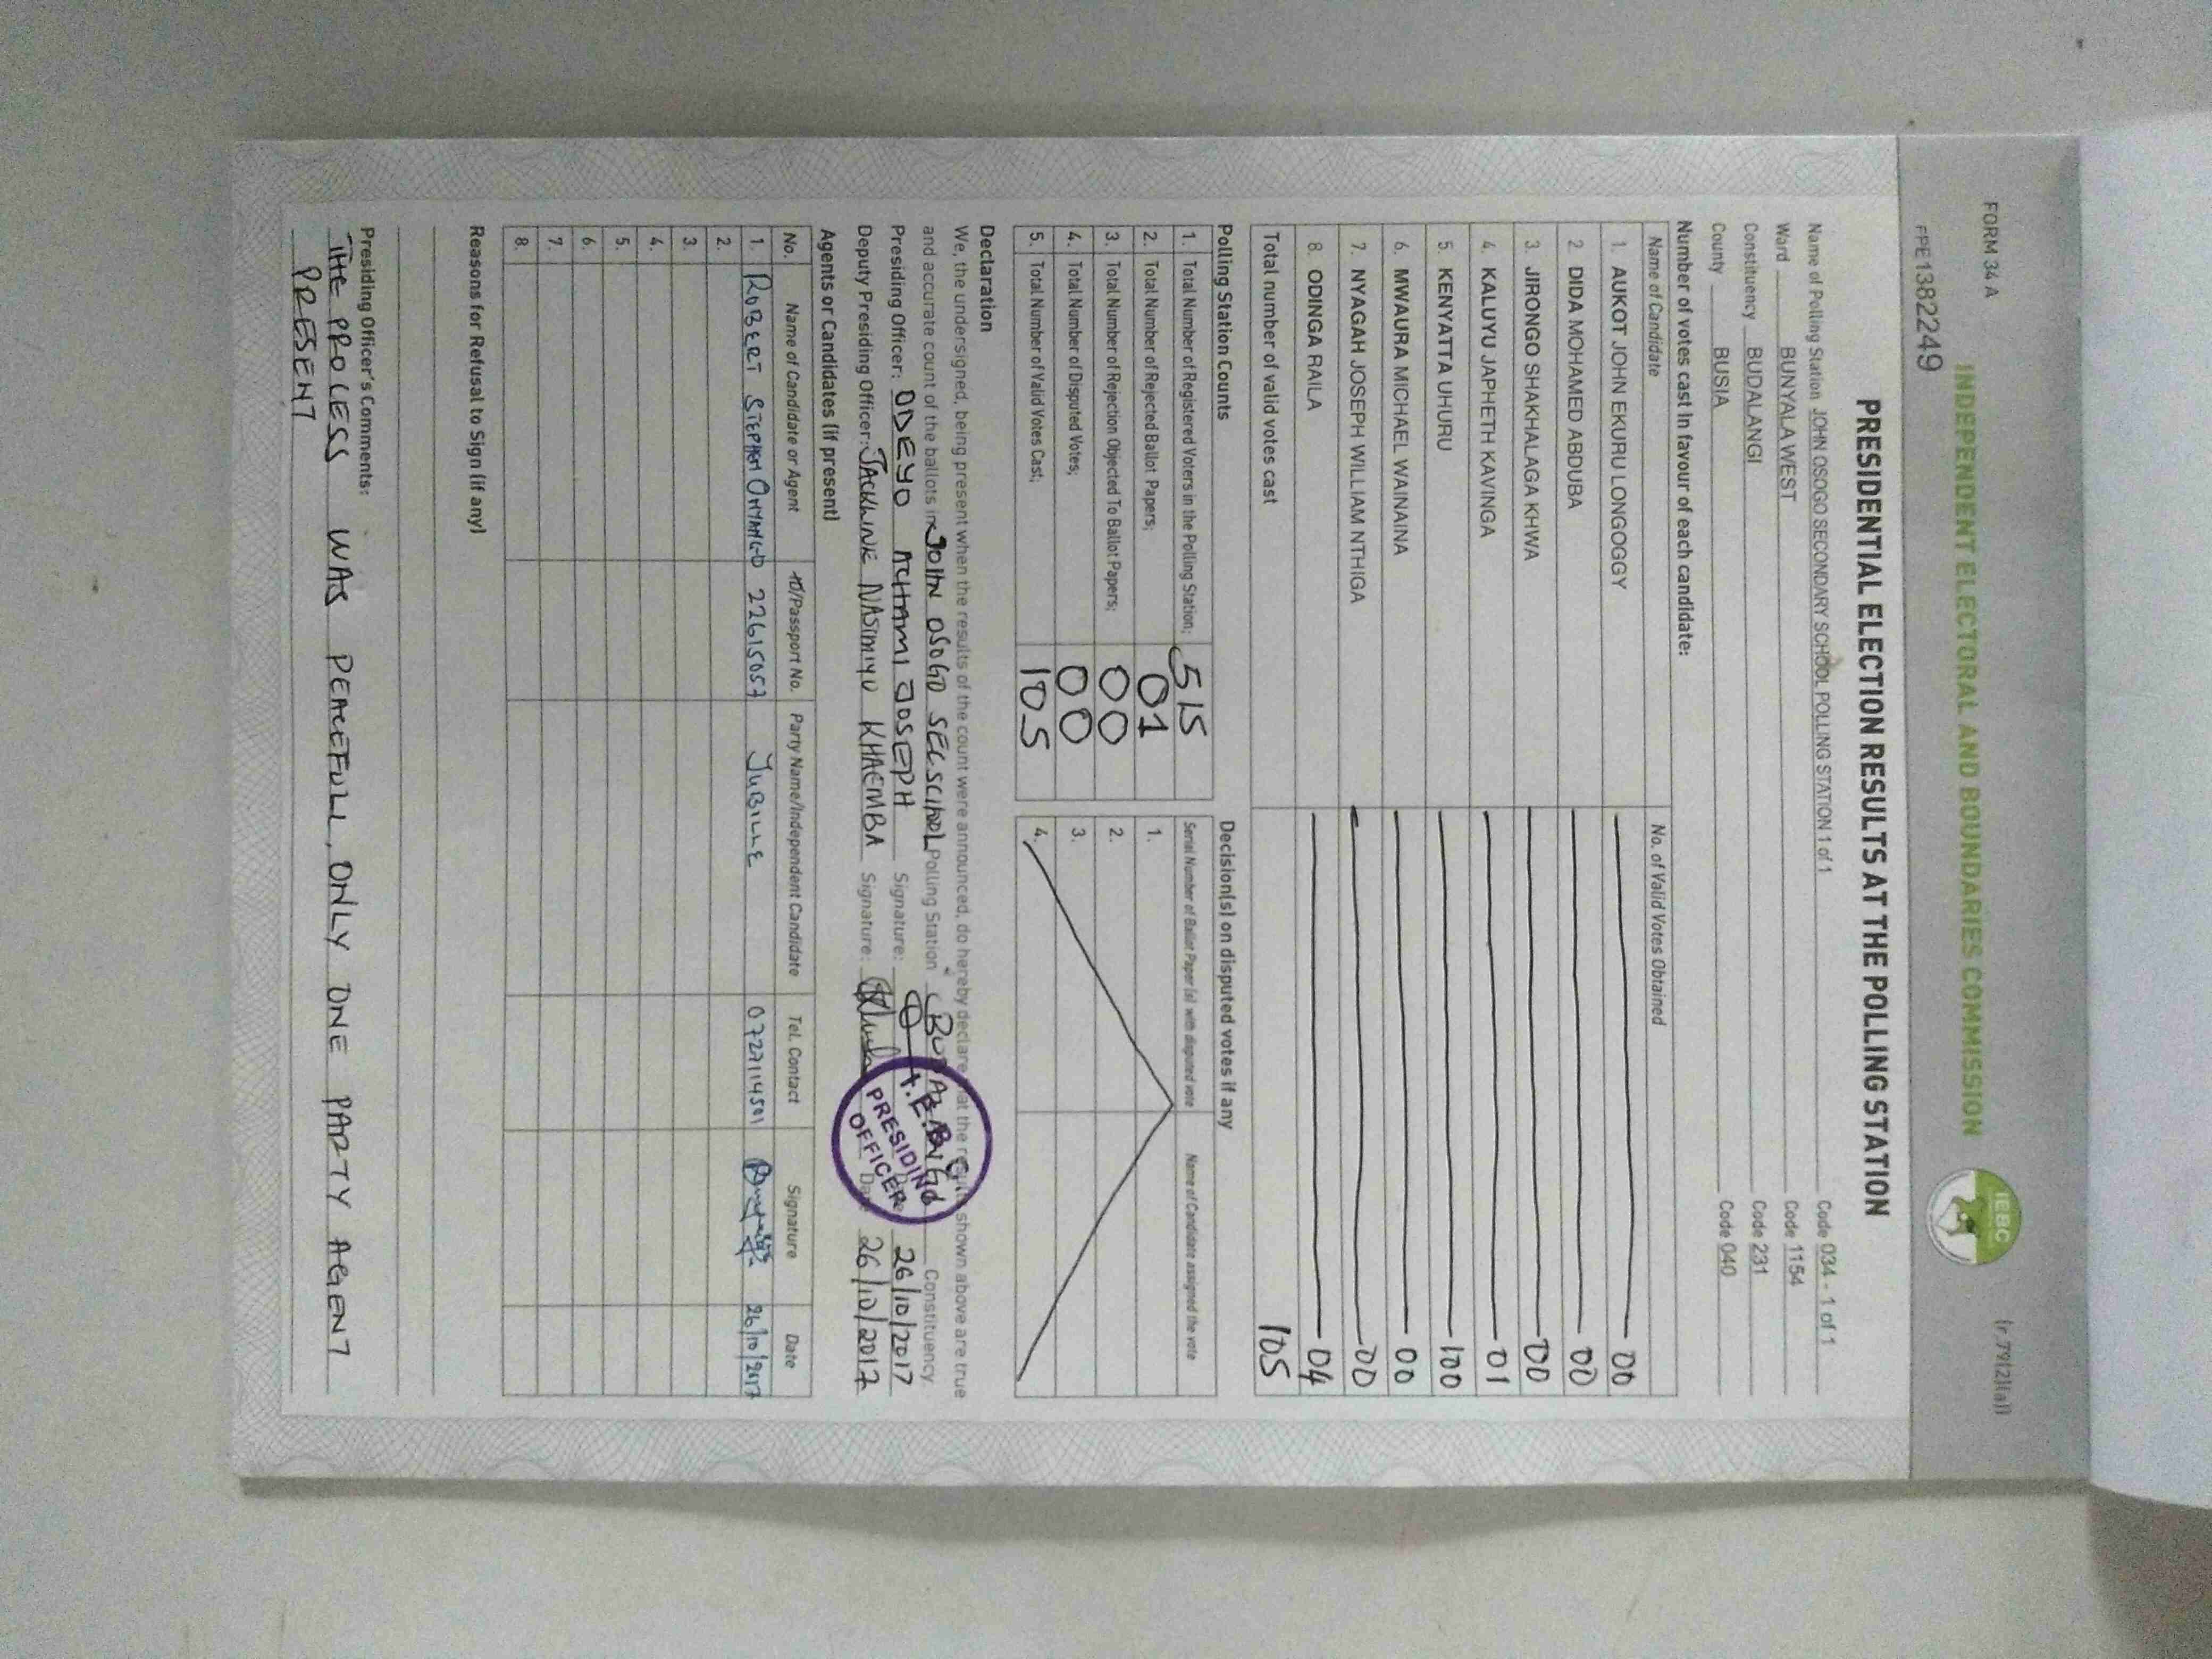 FORM 34 A
(r.79(2)(a))
INDEPENDENT ELECTORAL AND BOUNDARIES COMMISSION
IEBC
PPE1382249
PRESIDENTIAL ELECTION RESULTS AT THE POLLING STATION
Name of Polling Station JOHN OSOGO SECONDARY SCHOOL POLLING STATION 1 of 1 Code 034 - 1 of 1
Ward BUNYALA WEST Code 1154
Constituency BUDALANGI Code 231
County BUSIA Code 040
Number of votes cast in favour of each candidate:
Name of Candidate No. of Valid Votes Obtained
1. AUKOT JOHN EKURU LONGOGGY 00
2 DIDA MOHAMED ABDUBA 00
3. JIRONGO SHAKHALAGA KHWA 00
4. KALUYU JAPHETH KAVINGA 01
5. KENYATTA UHURU 100
6. MWAURA MICHAEL WAINAINA 00
7. NYAGAH JOSEPH WILLIAM NTHIGA 00
8. ODINGA RAILA 04
Total number of valid votes cast 105
Polling Station Counts
1. Total Number of Registered Voters in the Polling Station; 515
2. Total Number of Rejected Ballot Papers; 01
3. Total Number of Rejection Objected To Ballot Papers; 00
4. Total Number of Disputed Votes; 00
5. Total Number of Valid Votes Cast; 105
Decision(s) on disputed votes if any
Serial Number of Ballot Paper (s) with disputed vote Name of Candidate assigned the vote
1.
2.
3.
4.
Declaration
We, the undersigned, being present when the results of the count were announced, do hereby declare that the results shown above are true
and accurate count of the ballots in JOHN OSOGO SEC SCHOOL Polling Station BUDALANGI Constituency
Presiding Officer: ODEYO ACHAMI JOSEPH Signature: Date 26/10/2017
Deputy Presiding Officer: JACKLINE NASIMIYU KHAEMBA Signature: Date 26/10/2017
I.E.B.C
PRESIDING
OFFICER
Agents or Candidates (if present)
No. Name of Candidate or Agent ID/Passport No. Party Name/Independent Candidate Tel. Contact Signature Date
1. ROBERT STEPHEN ONYANGO 22615057 JUBILLE 0727114501 26/10/2017
2.
3
4.
5.
6.
7.
8.
Reasons for Refusal to Sign (if any)
Presiding Officer's Comments:
THE PROCESS WAS PEACEFULL, ONLY ONE PARTY AGENT
PRESENT